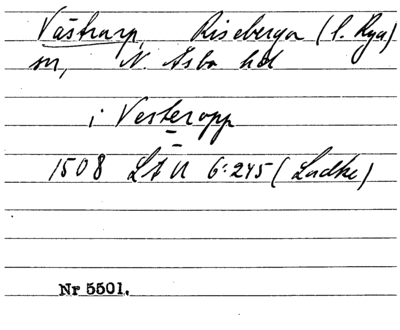 Västrarp, Riseberga (l. Rya)
sn, N. Åsbo hd
i Vesteropp
1508 LÄU 6:245 (Ludke)
Nr 5501.